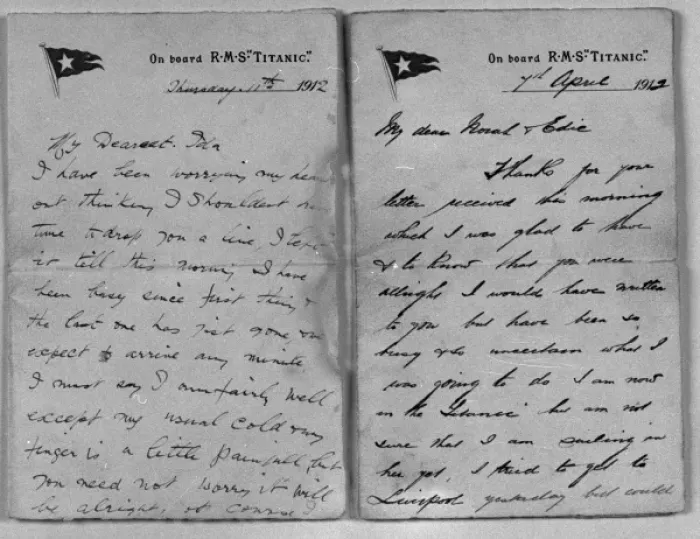 On board R·M·S "TITANIC".
Thursday 11th 1912
My Dearest Ida
I have been worrying my
out thinking I Shouldent
time to drop you a line, I
it till this morning I have
been busy since first thing &
the last one has just gone,
expect to arrive any minute
I must say I am fairly well
except my usual cold & my
finger is a little painfull but
you need not worry it will
be alright, of course I
On board R·M·S "TITANIC".
April 1912
My dear Norah & Edie
Thanks for your
letter received this morning
which I was glad to have
& to know that you were
allright I would have written
to you but have been so
busy & so uncertain what I
was going to do I am now
in the Titanic but am not
sure that I am sailing in
her yet. I tried to get to
Liverpool yesterday but could